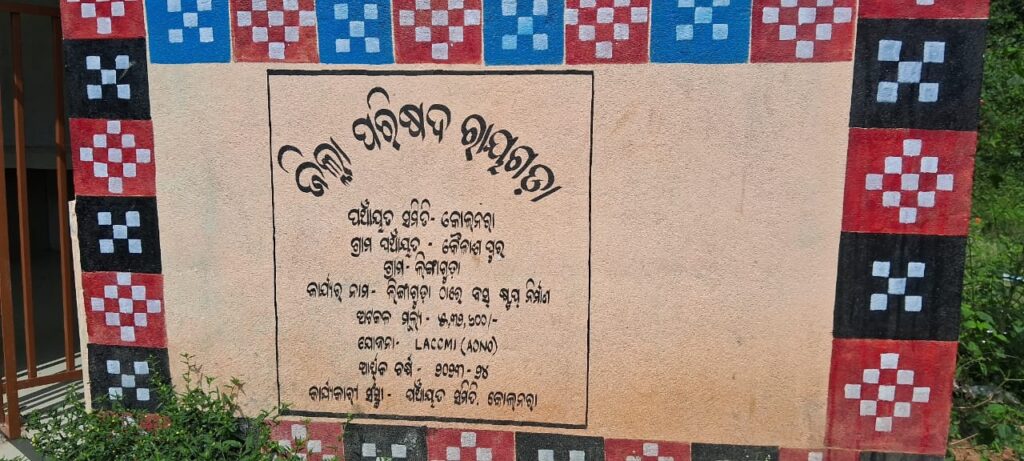 ଜିଲ୍ଲା ପରିଷଦ ରାୟଗଡ଼ା
ପଞ୍ଚାୟତ ସମିତି- କୋଲନରା
ଗ୍ରାମ ପଞ୍ଚାୟତ - କୈଳାଶ ପୁର
ଗ୍ରାମ- ଲିଙ୍ଗୀଗୁଡ଼ା
କାର୍ଯ୍ୟର ନାମ- ଲିଙ୍ଗୀଗୁଡ଼ା ଠାରେ ବସ୍ ଷ୍ଟପ୍ ନିର୍ମାଣ
ଅଟକଳ ମୂଲ୍ୟ -
ଯୋଜନା- LACCMI (AONO)
ଆର୍ଥିକ ବର୍ଷ - ୨୦୨୩-୨୪
କାର୍ଯ୍ୟକାରୀ ସଂସ୍ଥା- ପଞ୍ଚାୟତ ସମିତି, କୋଲନରା